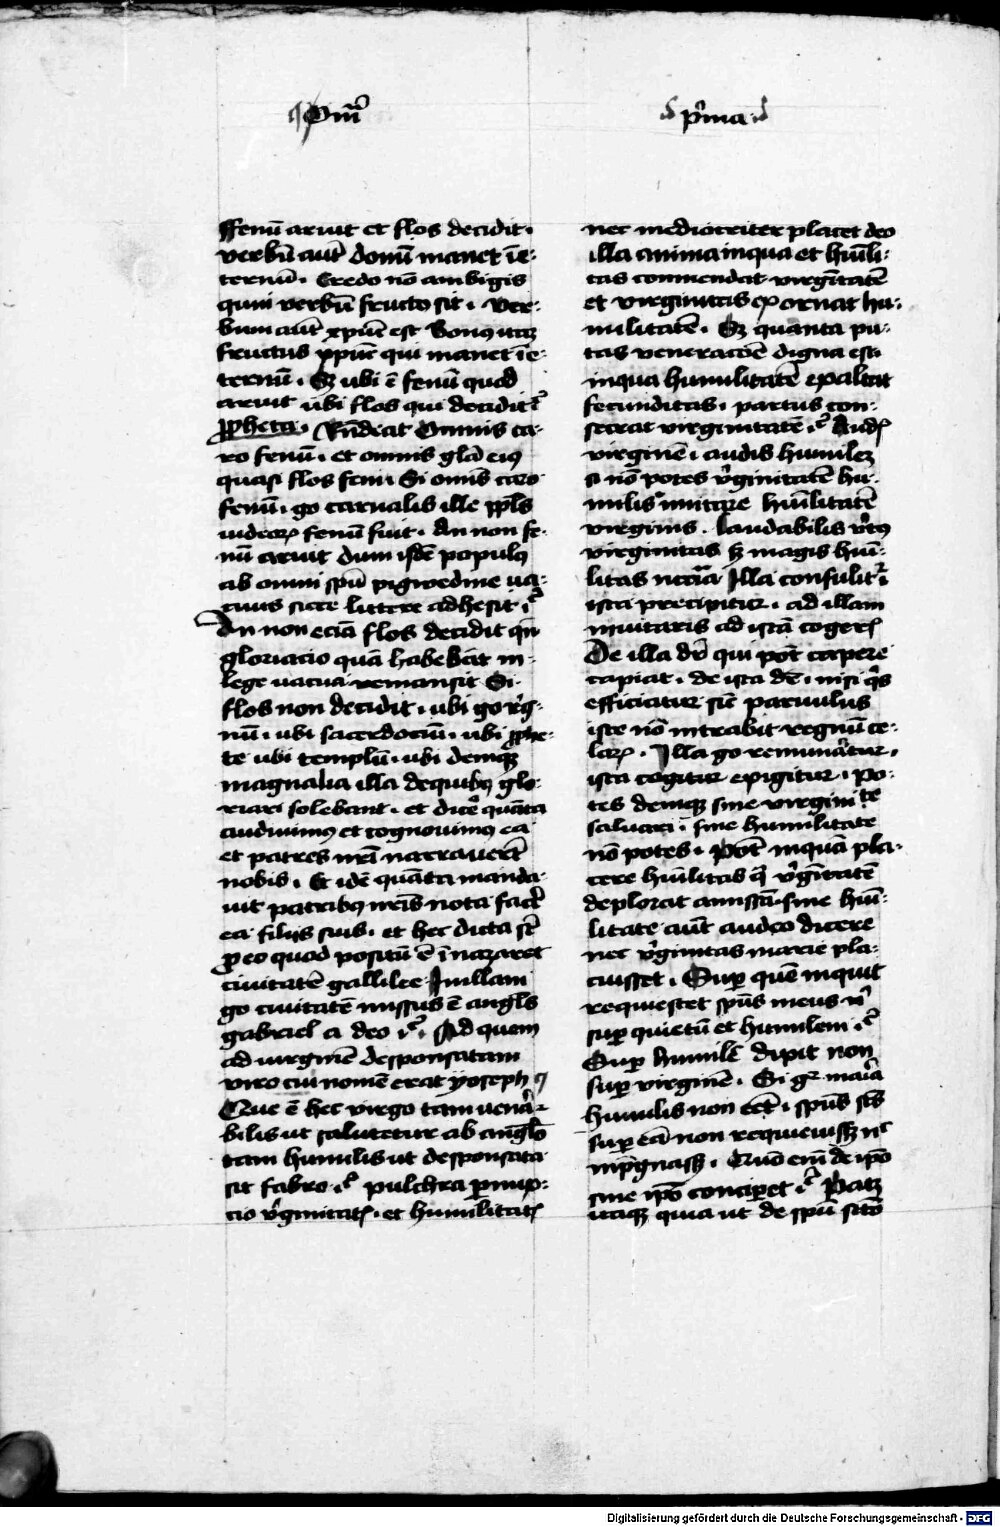 Om̄
p̄ima
ffenū aruit et flos decidit·
verbū aūt domī manet ī e-
ternū· Credo nō ambigis
quin verbū fructꝰ sit· Ver-
bum aūt xp̄m est Bonꝰ itaqꝫ
fructus xp̄us qui manet ī e-
ternū· Sꝫ ubi ē fenū quod
aruit ubi flos qui decidit ꝛc̄
ꝓpheta· Rn̄deat Omnis ca-
ro fenū· et omnis gl̄a eiꝰ
quasi flos feni Si om̄is caro
fenū· g̊ carnalis ille ppl̄s
iudeoꝝ fenū fuit· An non fe-
nū aruit dum idē populꝰ
ab omni spū pigwedine va-
cuus sicce littere adhesit ꝛc̄
An non eciā flos decidit qn̄
gloriacio quā habebāt in
lege vacua remansit Si
flos non decidit· ubi g̊ rᵉg-
nū· ubi sacerdociū· ubi ꝓphe-
te ubi templū· ubi deniqꝫ
magnalia illa de quibꝰ glo-
riari solebant· et dicē quāta
audiuimꝰ et cognouimꝰ ea
et patres nr̄i narrauer̄t
nobis· Et idē quāta manda-
uit patribꝰ nr̄is nota facē
ea filijs suis· et hec dicta st̄
ꝓ eo quod positū ē ī nazaret
ciuitatē gallilee In illam
g̊ ciuitatē missus ē angl̄s
gabriel a deo ꝛc̄· Ad quem
ad virginē desponsatam
viro cui nomē erat yoseph
Que ē hec virgo tam venā-
bilis ut salutetur ab angl̄o
tam humilis ut desponsata
sit fabro ꝛc̄ pulchra ꝑmix-
cio v̓ginitatꝭ· et humilitatꝭ
nec mediocriter placet deo
illa anima in qua et hūli-
tas commendat virgītatē
et virginitas exornat hu-
militatē· Sꝫ quanta pu-
tas veneracōe digna est
in qua humilitatē exaltat
fecunditas· partus con-
secrat virginitatē ꝛc̄ Audꝭ
virginē· audis humilez
si nō potes v̓ginitatē hu-
milis imitare hūlitatē
virginis· laudabilis v̓tꝰ
virginitas sꝫ magis hūi-
litas nccīa Illa consulitᷣ
ista precipitur· ad illam
inuitaris ad istā cogerꝭ
De illa dr̄ qui pot̄ capere
capiat· de ista dr̄· nisi q̓s
efficiatur sic̄ paruulus
iste nō intrabit regnū ce-
loꝝ· Illa g̊ remunāt̄ur·
ista cogitur exigitur· Po-
tes deniqꝫ sine virginite
saluari· sine humilitate
nō potes· Pot̄ inquā pla-
cere hūilitas q̄ v̓gītatē
deplorat amissā· sine hūi-
litate aūt audeo dicere
nec v̓ginitas marie pla-
cuisset· Suꝑ quē inquit
requiescet spūs meus nᶦ
suꝑ quietū et humilem ꝛc̄
Suꝑ humilē dixit non
suꝑ virginē· Si g̊ maīa
humilis non eēt· spūs scs̄
suꝑ eā non requieuissꝫ nᶜ
imp̄gnassꝫ· Quō em̄ de ip̄o
sine ip̄o conciꝑet ꝛc̄ Patꝫ
itaqꝫ quia ut de spū sctō
Digitalisierung gefördert durch die Deutsche Forschungsgemeinschaft · DFG